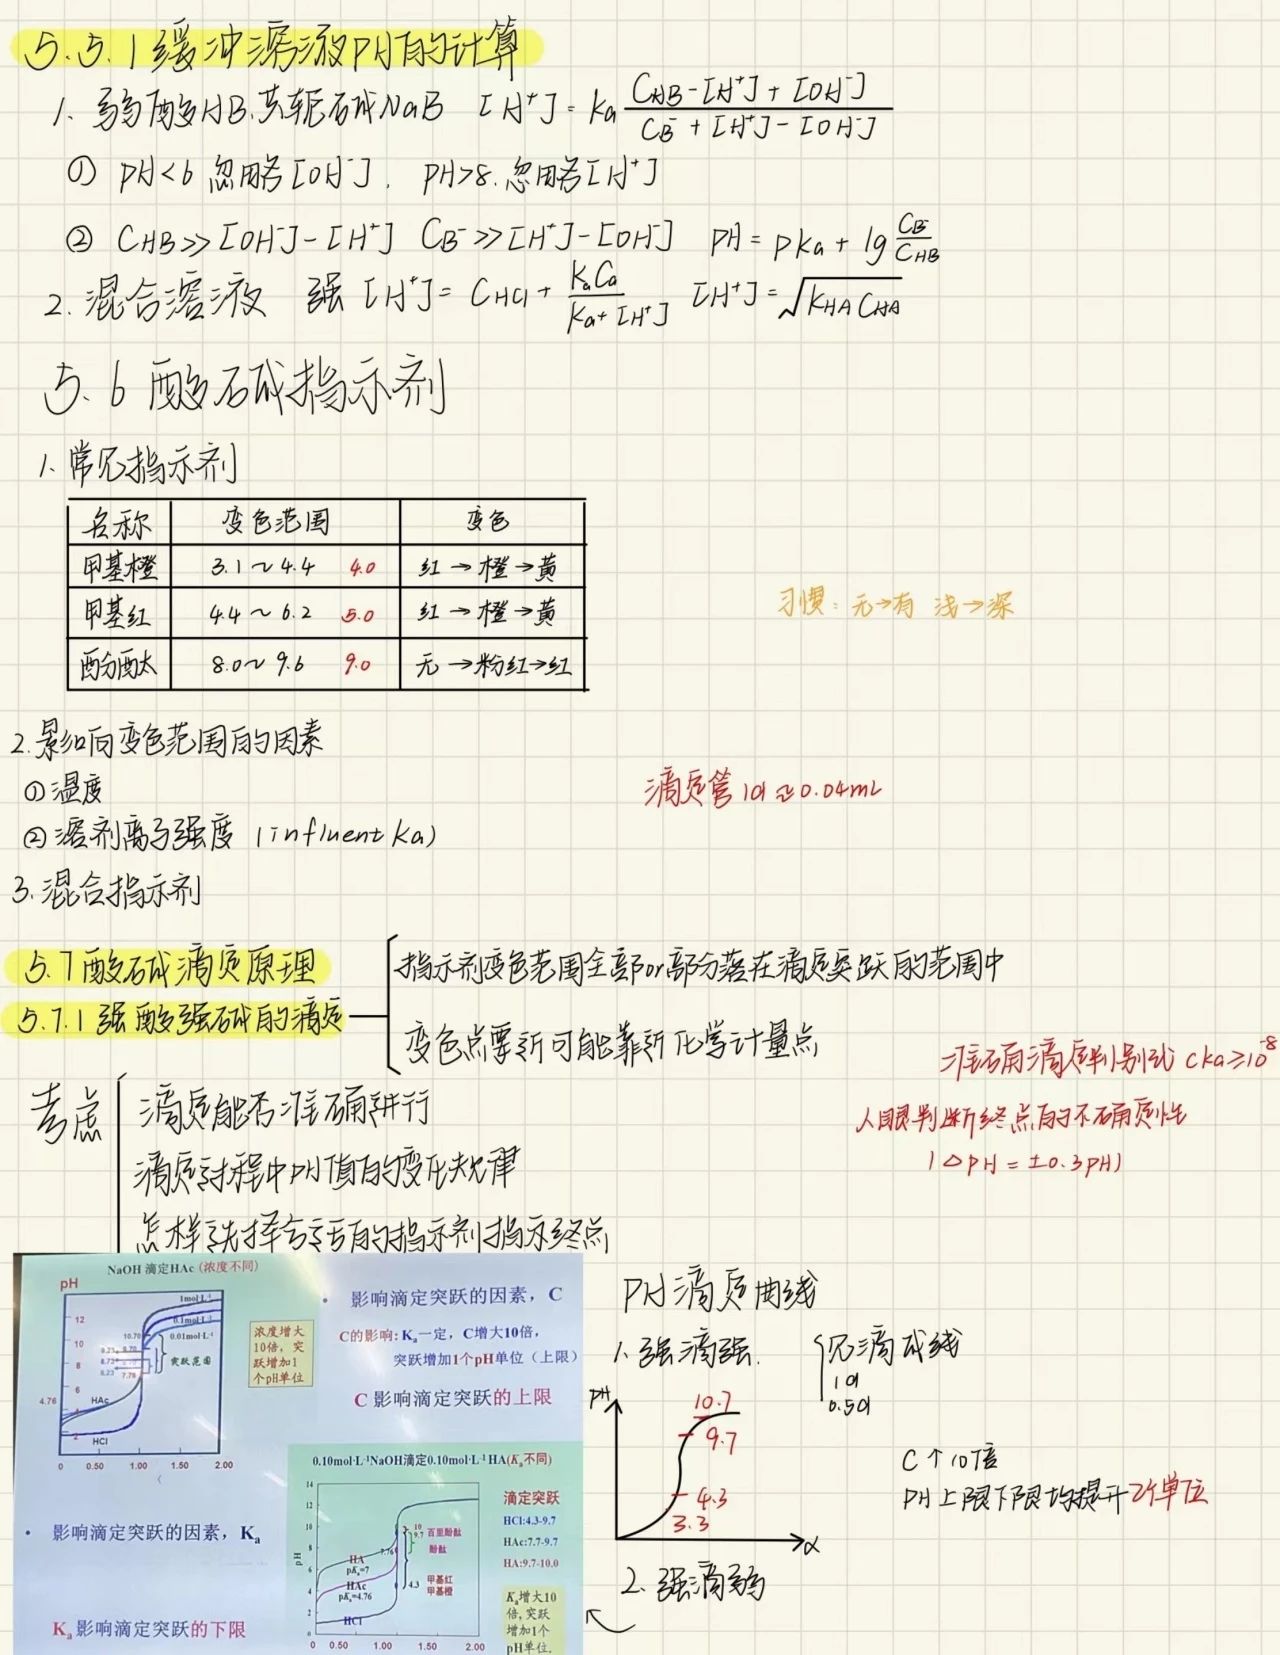 5.5.1缓冲溶液PH的计算
1. 弱酸HB.共轭碱NaB [H⁺]=Ka (CHB-[H⁺]+[OH⁻])/(CB⁻+[H⁺]-[OH⁻])
① PH<6 忽略[OH⁻]. PH>8.忽略[H⁺]
② CHB≫[OH⁻]-[H⁺] CB⁻≫[H⁺]-[OH⁻] PH=Pka+lg CB⁻/CHB
2.混合溶液 强 [H⁺]=CHCl+KaCa/(Ka+[H⁺]) [H⁺]=√(KHACHA)
5.6酸碱指示剂
1.常见指示剂
名称 变色范围 变色
甲基橙 3.1~4.4 4.0 红→橙→黄
甲基红 4.4~6.2 5.0 红→橙→黄
酚酞 8.0~9.6 9.0 无→粉红→红
习惯:无→有 浅→深
2.影响变色范围的因素
①温度
②溶剂离子强度(influent Ka)
3.混合指示剂
滴定管1d≈0.04mL
5.7酸碱滴定原理
5.7.1强酸强碱的滴定
指示剂变色范围全部or部分落在滴定突跃的范围中
变色点要近可能靠近化学计量点
考虑
滴定能否准确进行
滴定过程中PH值的变化规律
怎样选择合适的指示剂指示终点
准确滴定判别式 cKa≥10⁻⁸
人眼判断终点的不确定性
(△PH=±0.3PH)
NaOH 滴定HAc (浓度不同)
pH
12
10
8
6
4.76
2
1mol·L⁻¹
0.1mol·L⁻¹
0.01mol·L⁻¹
10.70
7.70
突跃范围
HAc
HCl
0 0.50 1.00 1.50 2.00
浓度增大
10倍,突
跃增加1
个pH单位
· 影响滴定突跃的因素,C
C的影响:Kₐ一定,C增大10倍,
突跃增加1个pH单位(上限)
C 影响滴定突跃的上限
· 影响滴定突跃的因素,Kₐ
Kₐ影响滴定突跃的下限
0.10mol·L⁻¹NaOH滴定0.10mol·L⁻¹HA(Kₐ不同)
pH
14
12
10
8
6
4
2
0
HA
pKₐ=7
HAc
pKₐ=4.76
HCl
7.76
10
9.7
4.3
百里酚酞
酚酞
甲基红
甲基橙
0 0.50 1.00 1.50 2.00
滴定突跃
HCl:4.3-9.7
HAc:7.7-9.7
HA:9.7-10.0
Kₐ增大10
倍,突跃
增加1个
pH单位.
PH滴定曲线
1.强滴强.
见滴成线
1d
0.5d
PH
10.7
9.7
4.3
3.3
α
C↑10倍
PH上限下限均提升2个单位
2.强滴弱